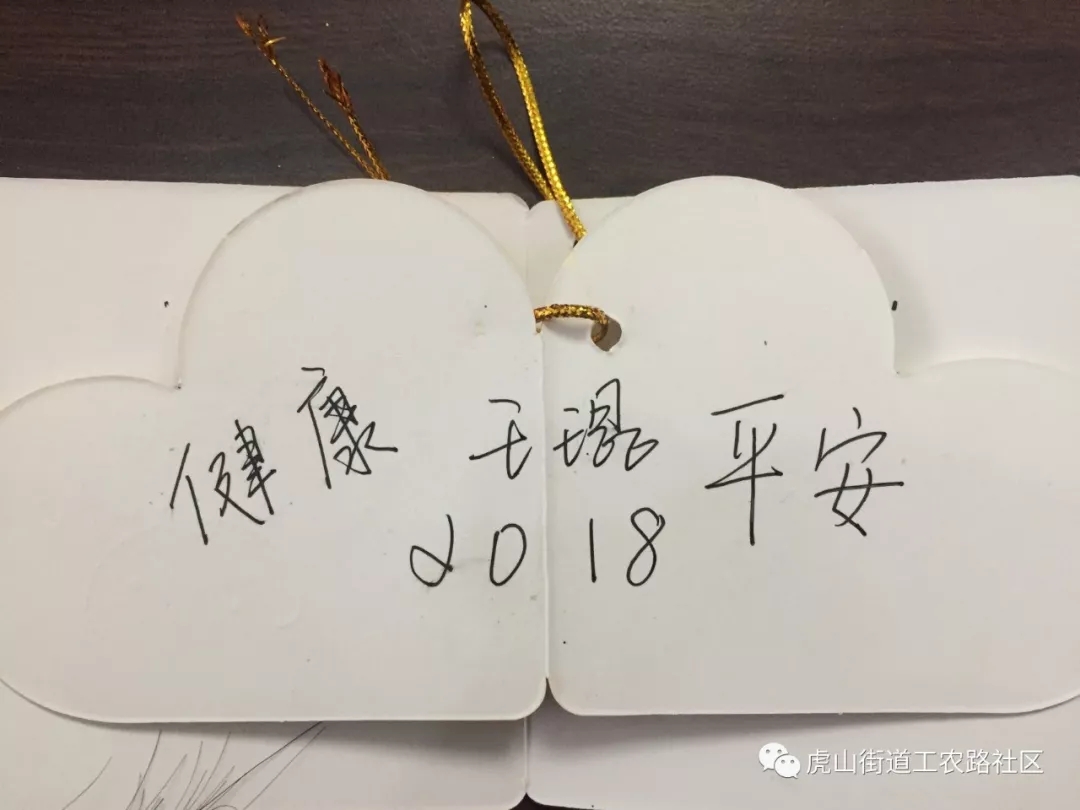 健康 王琨 平安
2018
虎山街道工农路社区